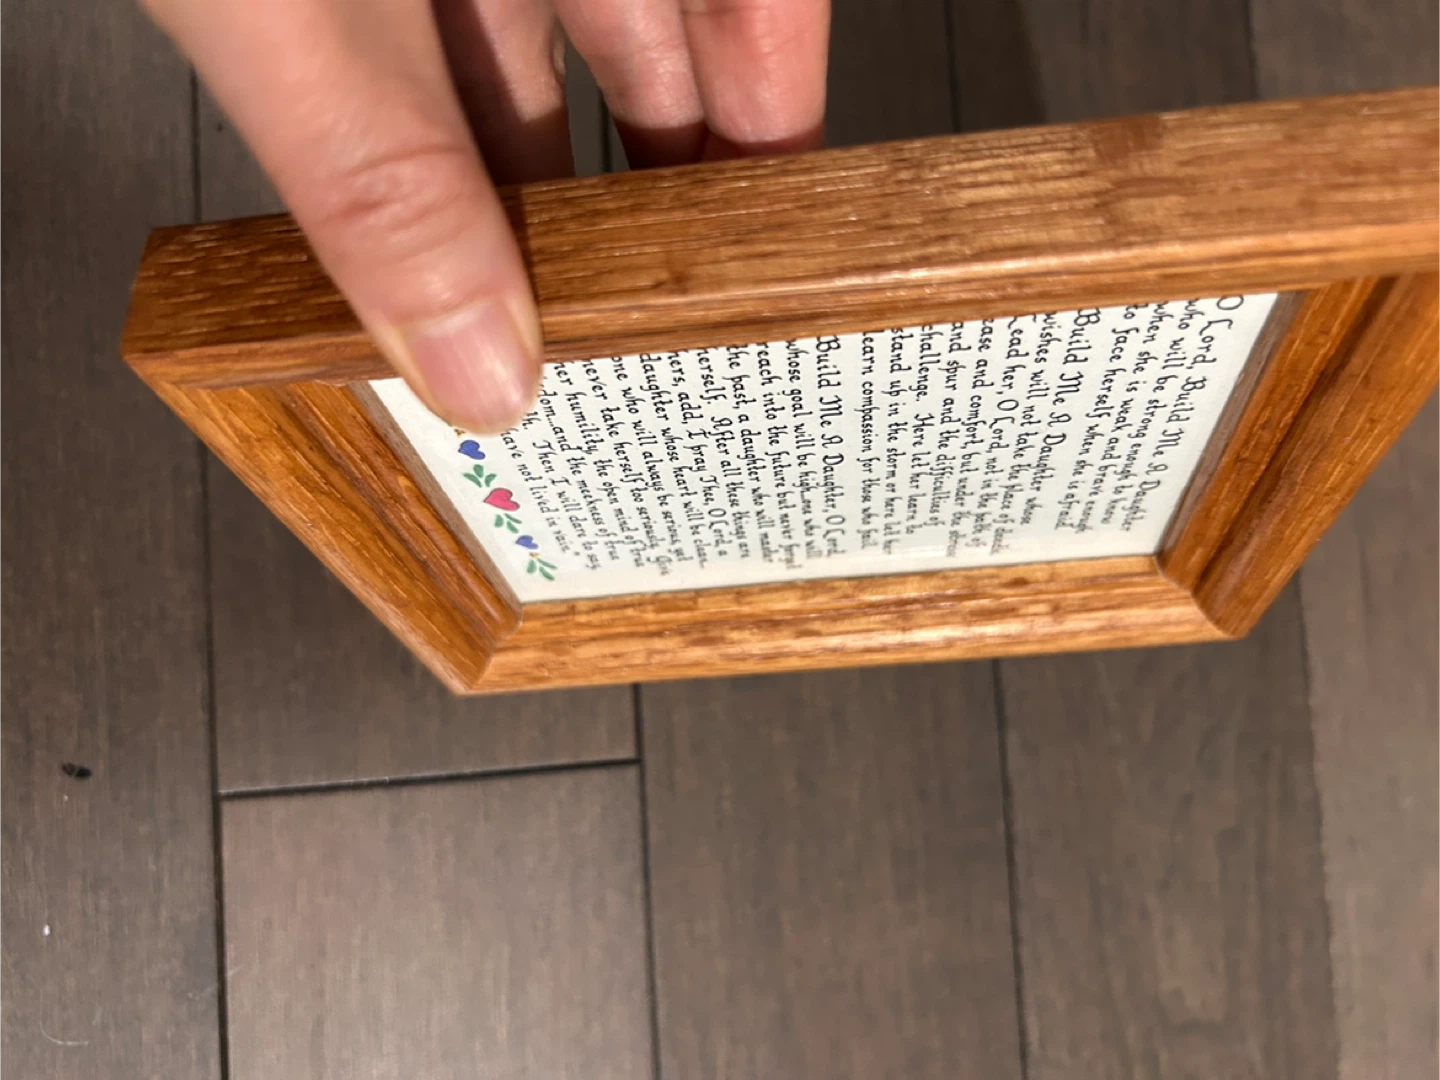 O Lord, Build Me A Daughter
who will be strong enough to know
when she is weak and brave enough
to face herself when she is afraid
Build Me A Daughter whose
wishes will not take the place of deeds
Lead her, O Lord, not in the path of
ease and comfort, but under the stress
and spur and the difficulties of
challenge. Here let her learn to
stand up in the storm or here let her
learn compassion for those who fail.
Build Me A Daughter, O Lord,
whose goal will be high...one who will
reach into the future but never forget
the past, a daughter who will master
herself. After all these things are
hers, add, I pray Thee, O Lord, a
daughter whose heart will be clean..
one who will always be serious, yet
never take herself too seriously. Give
her humility, the open mind of true
and the meekness of true
Then I will dare to say
have not lived in vain."